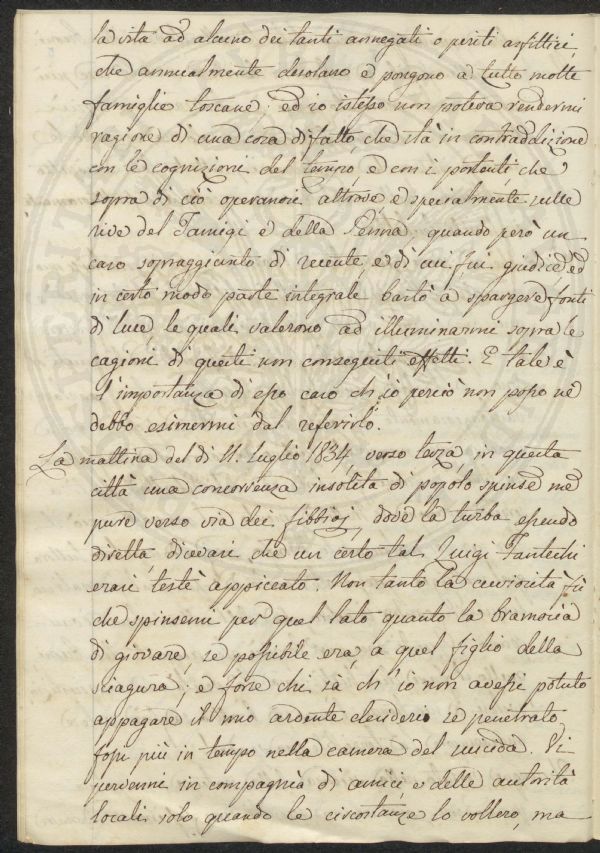 la vita ad alcuno dei tanti annegati o periti asfittici
che annualmente desolano e pongono a lutto molte
famiglie toscane; ed io istesso non poteva rendermi
ragione di una cosa di fatto, che stà in contraddizione
con le cognizioni del e con i portenti che
sopra di ciò operansi altrove e specialmente sulle
rive del Tamigi e della Senna; quando però un
caso sopraggiunto di recente, e di cui fui giudice ed
in certo modo parte integrale bastò a spargere fonti
di luce, le quali valerono ad illuminarmi sopra le
cagioni di questi non conseguiti effetti. E tale è
l'importanza di esso caso ch'io perciò non posso nè
debbo esimermi dal referirlo.
La mattina del dì 11. Luglio 1834, verso terza, in questa
città una concorrenza insolita di popolo spinse me
pure verso via dei fibbiaj, dove la turba essendo
diretta, dicevasi, che un certo tal Luigi Fantechi
erasi testè appiccato. Non tanto la curiosità fù
che spinsemi per quel lato quanto la bramosia
di giovare, se possibile era, a quel figlio della
sciagura; e forse chi sà ch'io non avessi potuto
appagare il mio ardente desiderio se penetrato
fossi più in tempo nella camera del suicida. Vi
pervenni in compagnia di amici, e delle autorità
locali solo quando le circostanze lo vollero, ma